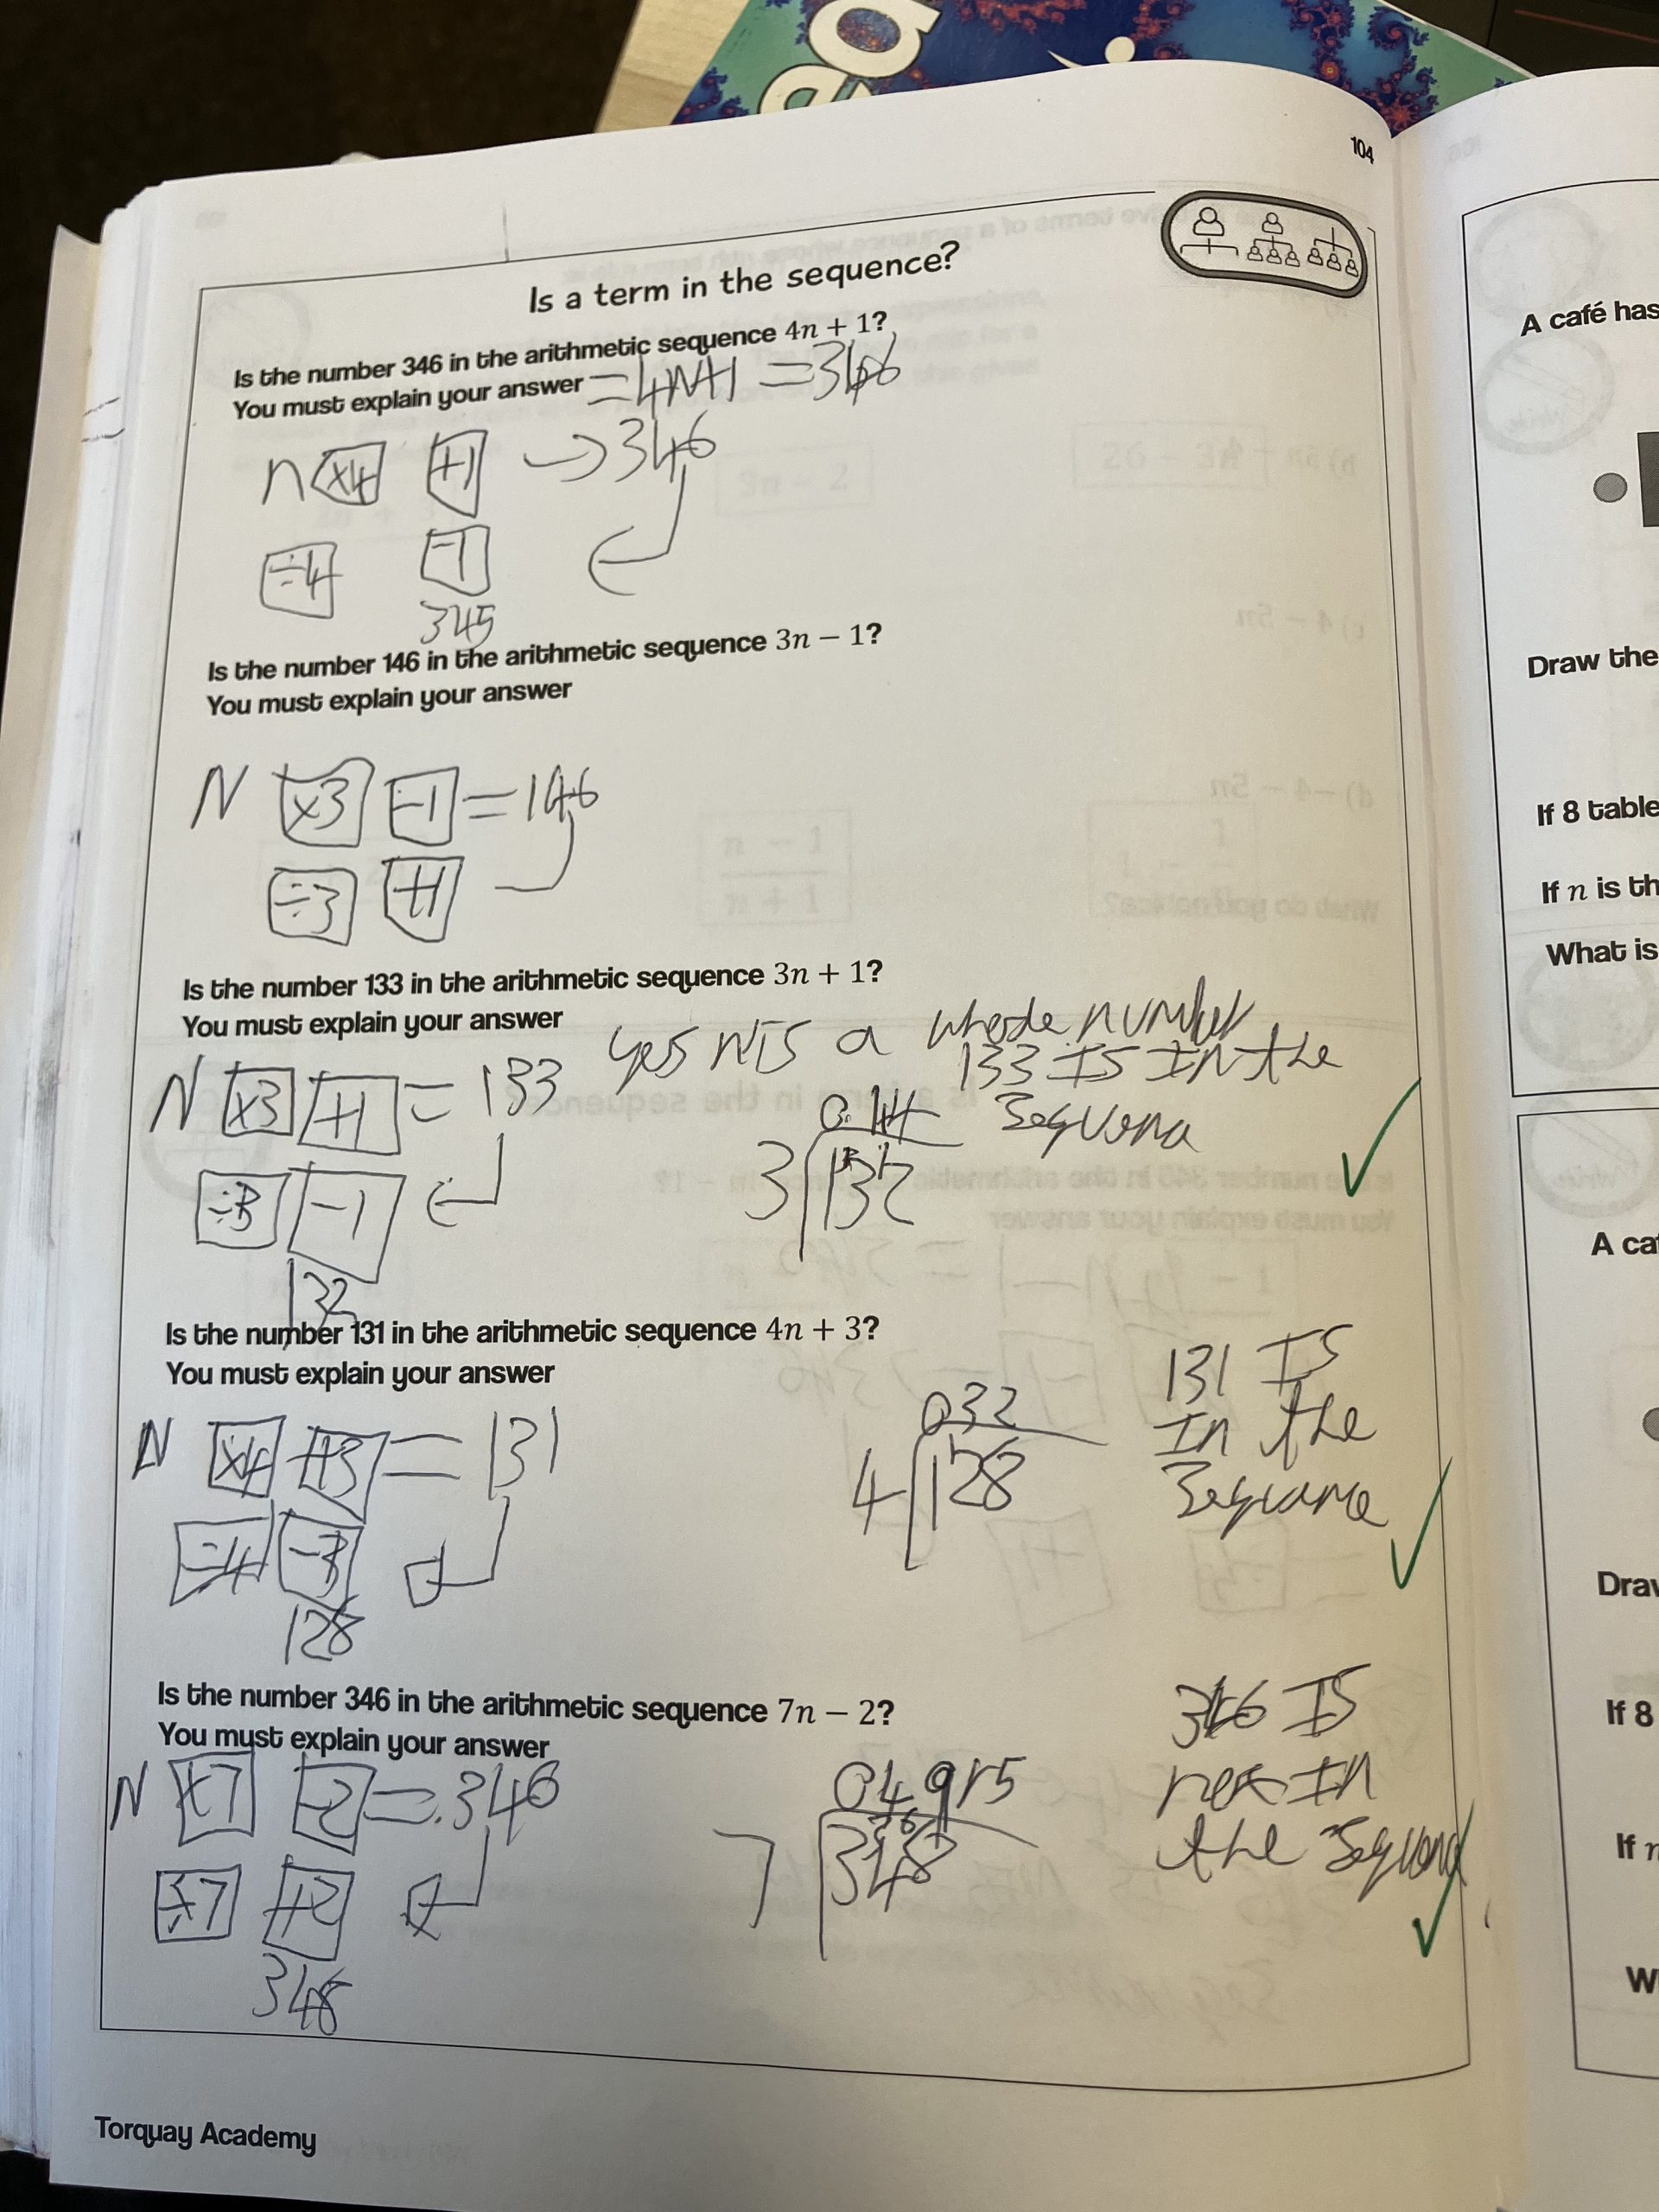 104
Is a term in the sequence?
Is the number 346 in the arithmetic sequence 4n + 1?
You must explain your answer = 4N+1 = 346
n ×4 +1 → 346
÷4 -1
345
Is the number 146 in the arithmetic sequence 3n − 1?
You must explain your answer
N ×3 -1 = 146
÷3 +1
Is the number 133 in the arithmetic sequence 3n + 1?
You must explain your answer
yes N IS a whole number
133 IS IN the
N ×3 +1 = 133
044
÷3 -1
3 132
132
Is the number 131 in the arithmetic sequence 4n + 3?
You must explain your answer
131 IS
In the
N ×4 +3 = 131
032
4 128
÷4 -3
128
Is the number 346 in the arithmetic sequence 7n − 2?
You must explain your answer
346 IS
not In
the
N ×7 -2 = 346
049r5
7 348
÷7 +2
348
Torquay Academy
A café has
Draw the
If 8 table
If n is th
What is
A ca
Draw
If 8
If n
W